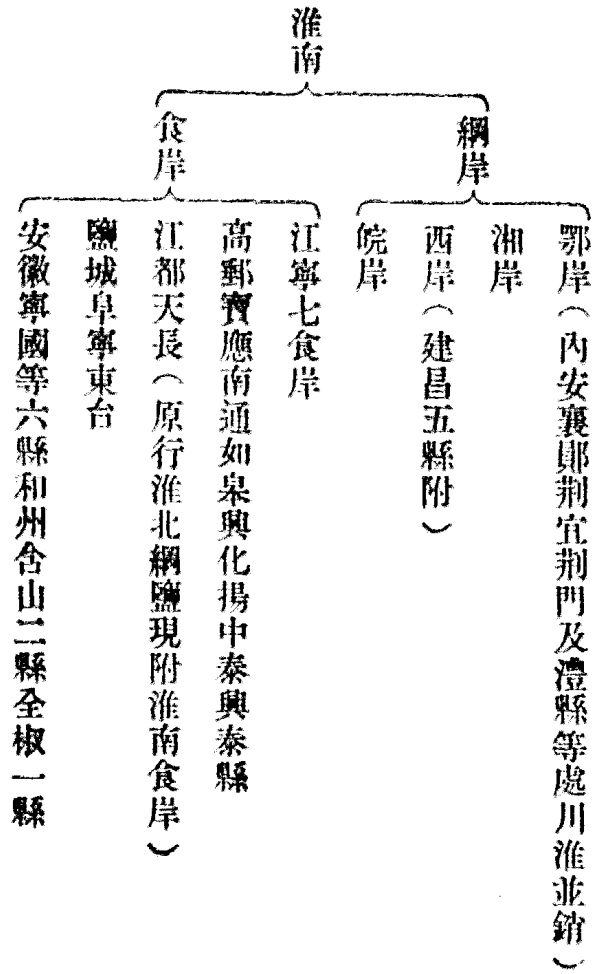 淮南
綱岸
鄂岸（內安襄鄖荆宜荆門及澧縣等處川淮並銷）
湘岸
西岸（建昌五縣附）
皖岸
食岸
江寧七食岸
高郵寶應南通如皋興化揚中泰興泰縣
江都天長（原行淮北綱鹽現附淮南食岸）
鹽城阜寧東台
安徽寧國等六縣和州含山二縣全椒一縣